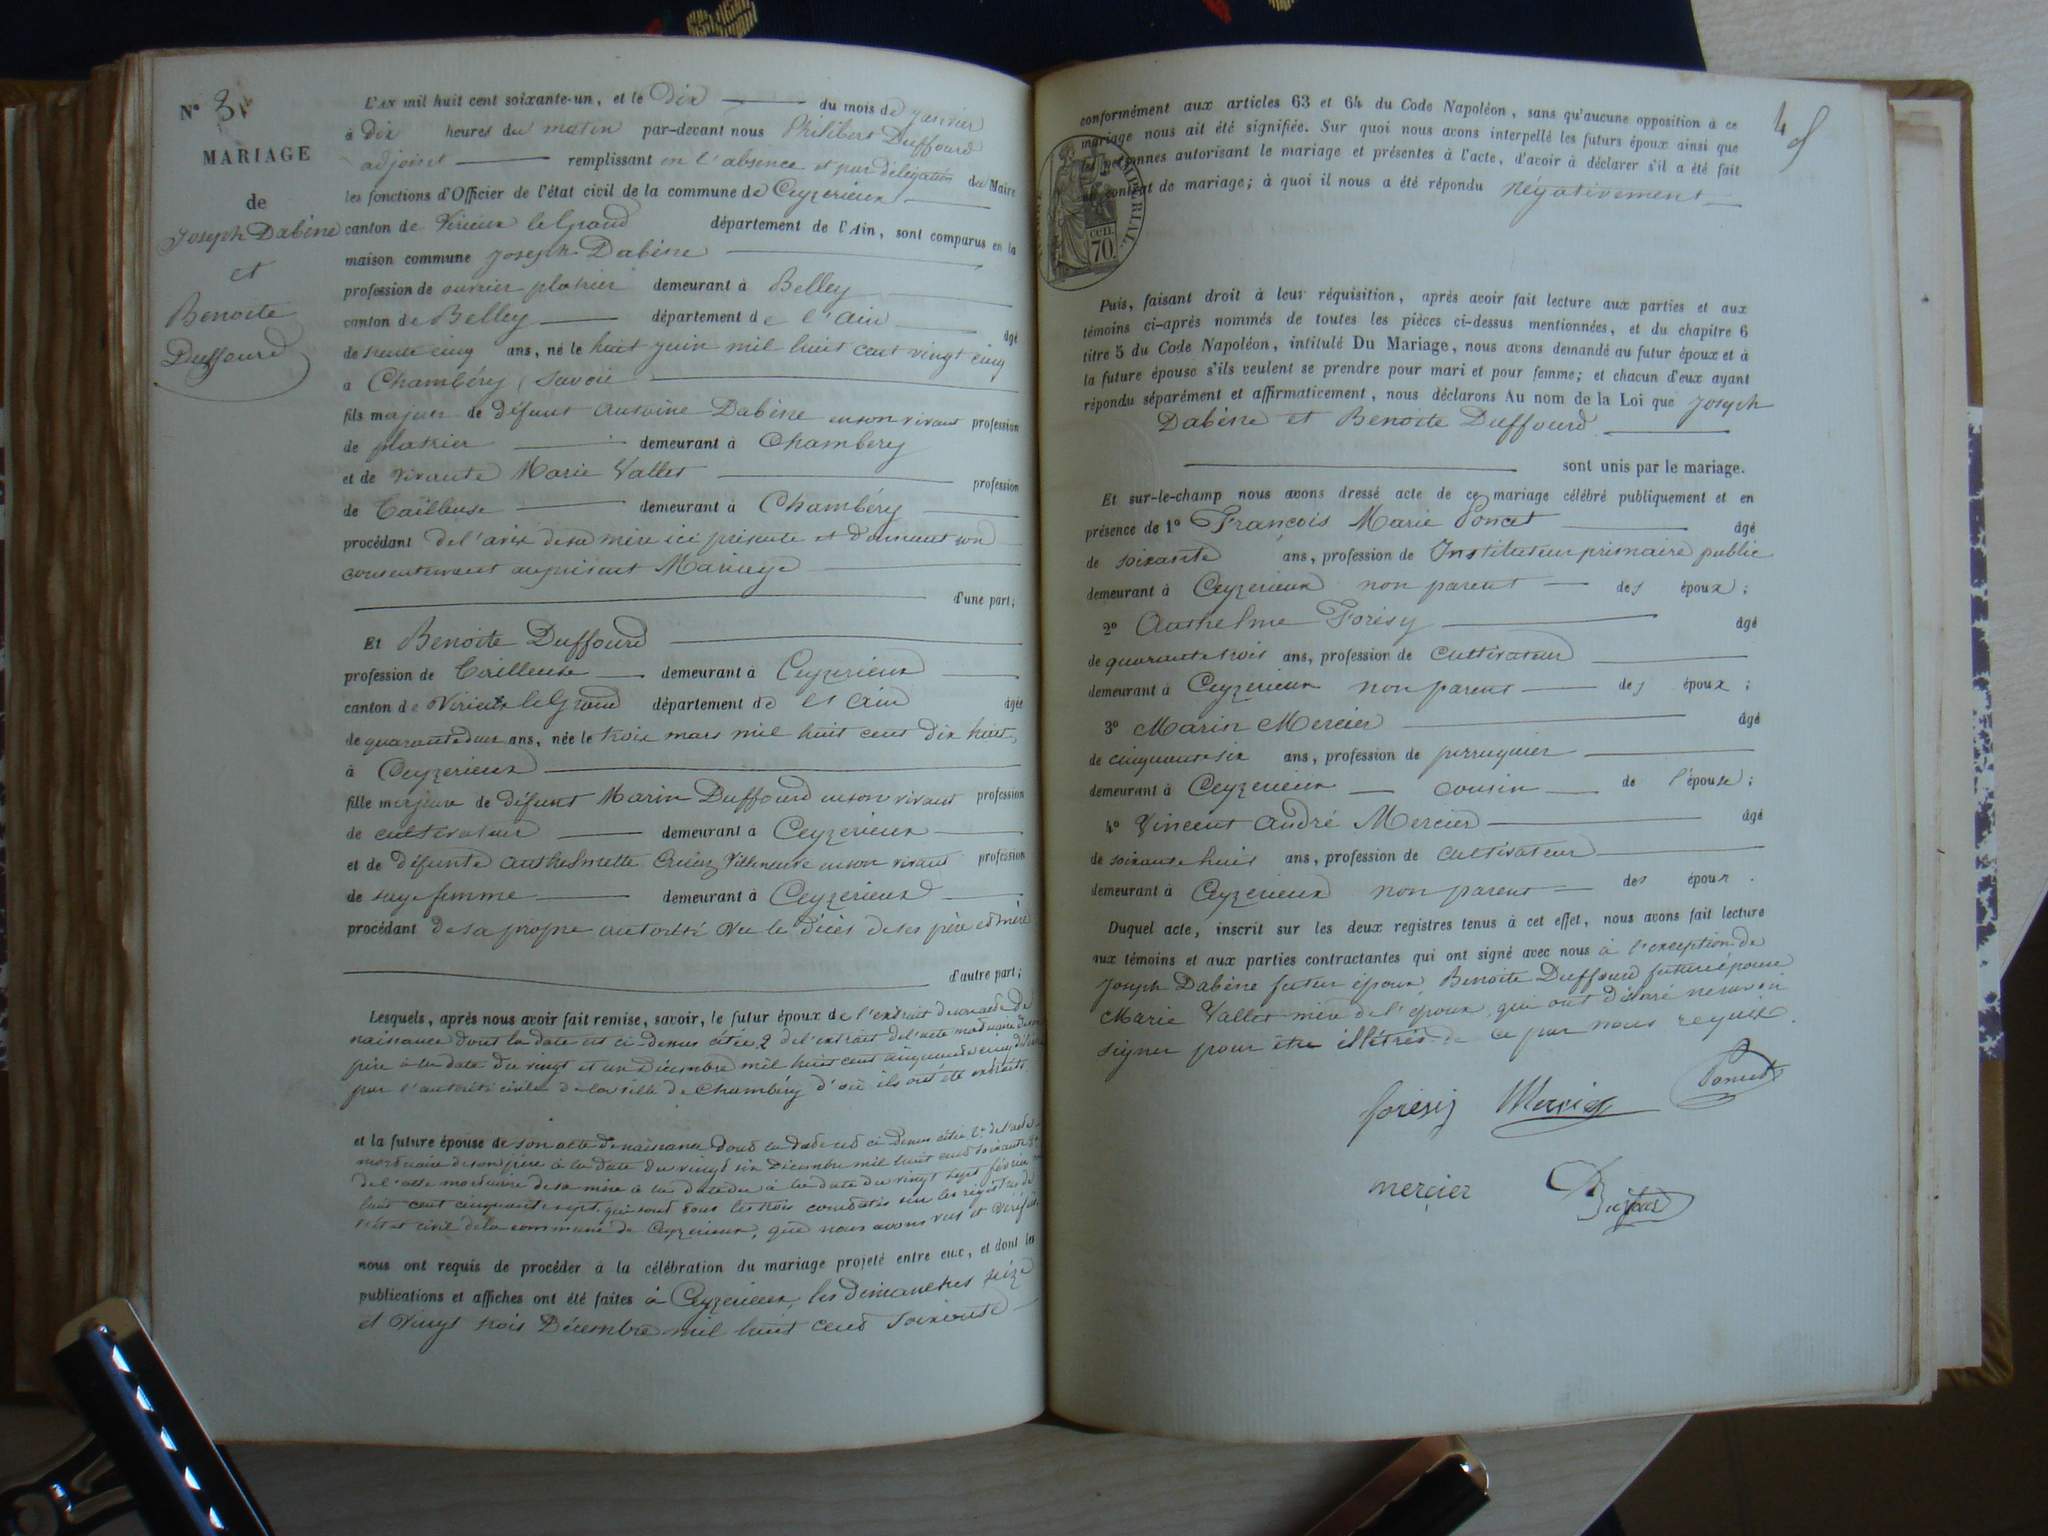 N° 3
MARIAGE
de
Joseph Dabène
et
Benoite
Duffourd
L'AN mil huit cent soixante-un, et le Dix du mois de janvier
à dix heures du matin par-devant nous Philibert Duffourd
adjoint remplissant en l'absence et par délégation du Maire
les fonctions d'Officier de l'état civil de la commune de Ceyzerieux
canton de Virieux le Grand département de l'Ain, sont comparus en la
maison commune Joseph Dabène
profession de ouvrier platrier demeurant à Belley
canton de Belley département de l'ain âgé
de trente cinq ans, né le huit juin mil huit cent vingt cinq
à Chambéry, Savoie
fils majeur de défunt Antoine Dabène en son vivant profession
de platrier demeurant à Chambéry
et de vivante Marie Vallet profession
de Tailleuse demeurant à Chambéry
procédant de l'avis de sa mère ici présente et donnant son
consentement au présent Mariage
d'une part;
Et Benoite Duffourd
profession de Tailleuse demeurant à Ceyzerieux
canton de Virieux le Grand département de l'Ain âgée
de quarante deux ans, née le trois mars mil huit cent dix huit,
à Ceyzerieux
fille majeure de défunt Marin Duffourd en son vivant profession
de cultivateur demeurant à Ceyzerieux
et de défunte Anthelmette Villeneuve en son vivant profession
de sage femme demeurant à Ceyzerieux
procédant de sa propre autorité vu le décès de ses père et mère
d'autre part;
Lesquels, après nous avoir fait remise, savoir, le futur époux de l'extrait de son acte de
naissance dont la date est ci dessus citée, 2 de l'extrait de l'acte mortuaire de son
père à la date du vingt et un Décembre mil huit cent cinquante cinq
par l'autorité civile de la ville de Chambéry d'où ils ont été extraits
et la future épouse de son acte de naissance dont la date est ci dessus citée 2° de l'acte
mortuaire de son père à la date du vingt six Décembre mil huit cent soixante 3°
de l'acte mortuaire de sa mère à la date du à la date du vingt sept février
huit cent cinquante sept qui sont tous les trois constatés sur les registres de
l'état civil de la commune de Ceyzerieux, que nous avons vus et vérifiés.
nous ont requis de procéder à la célébration du mariage projeté entre eux, et dont les
publications et affiches ont été faites à Ceyzerieux, les dimanches seize
et vingt trois Décembre mil huit cent soixante
4
conformément aux articles 63 et 64 du Code Napoléon, sans qu'aucune opposition à ce
mariage nous ait été signifiée. Sur quoi nous avons interpellé les futurs époux ainsi que
personnes autorisant le mariage et présentes à l'acte, d'avoir à déclarer s'il a été fait
contrat de mariage; à quoi il nous a été répondu négativement
IMPÉRIAL.
CEN.
70
Puis, faisant droit à leur réquisition, après avoir fait lecture aux parties et aux
témoins ci-après nommés de toutes les pièces ci-dessus mentionnées, et du chapitre 6
titre 5 du Code Napoléon, intitulé Du Mariage, nous avons demandé au futur époux et à
la future épouse s'ils veulent se prendre pour mari et pour femme; et chacun d'eux ayant
répondu séparément et affirmativement, nous déclarons Au nom de la Loi que Joseph
Dabène et Benoite Duffourd
sont unis par le mariage.
Et sur-le-champ nous avons dressé acte de ce mariage célébré publiquement et en
présence de 1° François Marie Poncet âgé
de soixante ans, profession de Instituteur primaire public
demeurant à Ceyzerieux non parent des époux;
2° Anthelme Forésy âgé
de quarante trois ans, profession de cultivateur
demeurant à Ceyzerieux non parent des époux;
3° Marin Mercier âgé
de cinquante six ans, profession de perruquier
demeurant à Ceyzerieux cousin de l'épouse;
4° Vincent André Mercier âgé
de soixante huit ans, profession de cultivateur
demeurant à Ceyzerieux non parent des époux.
Duquel acte, inscrit sur les deux registres tenus à cet effet, nous avons fait lecture
aux témoins et aux parties contractantes qui ont signé avec nous à l'exception de
Joseph Dabène futur époux, Benoite Duffourd future épouse
Marie Vallet mère de l'époux, qui ont déclaré ne savoir
signer pour être illétrés de ce par nous requis.
forésy Mercier Poncet
mercier Duffourd